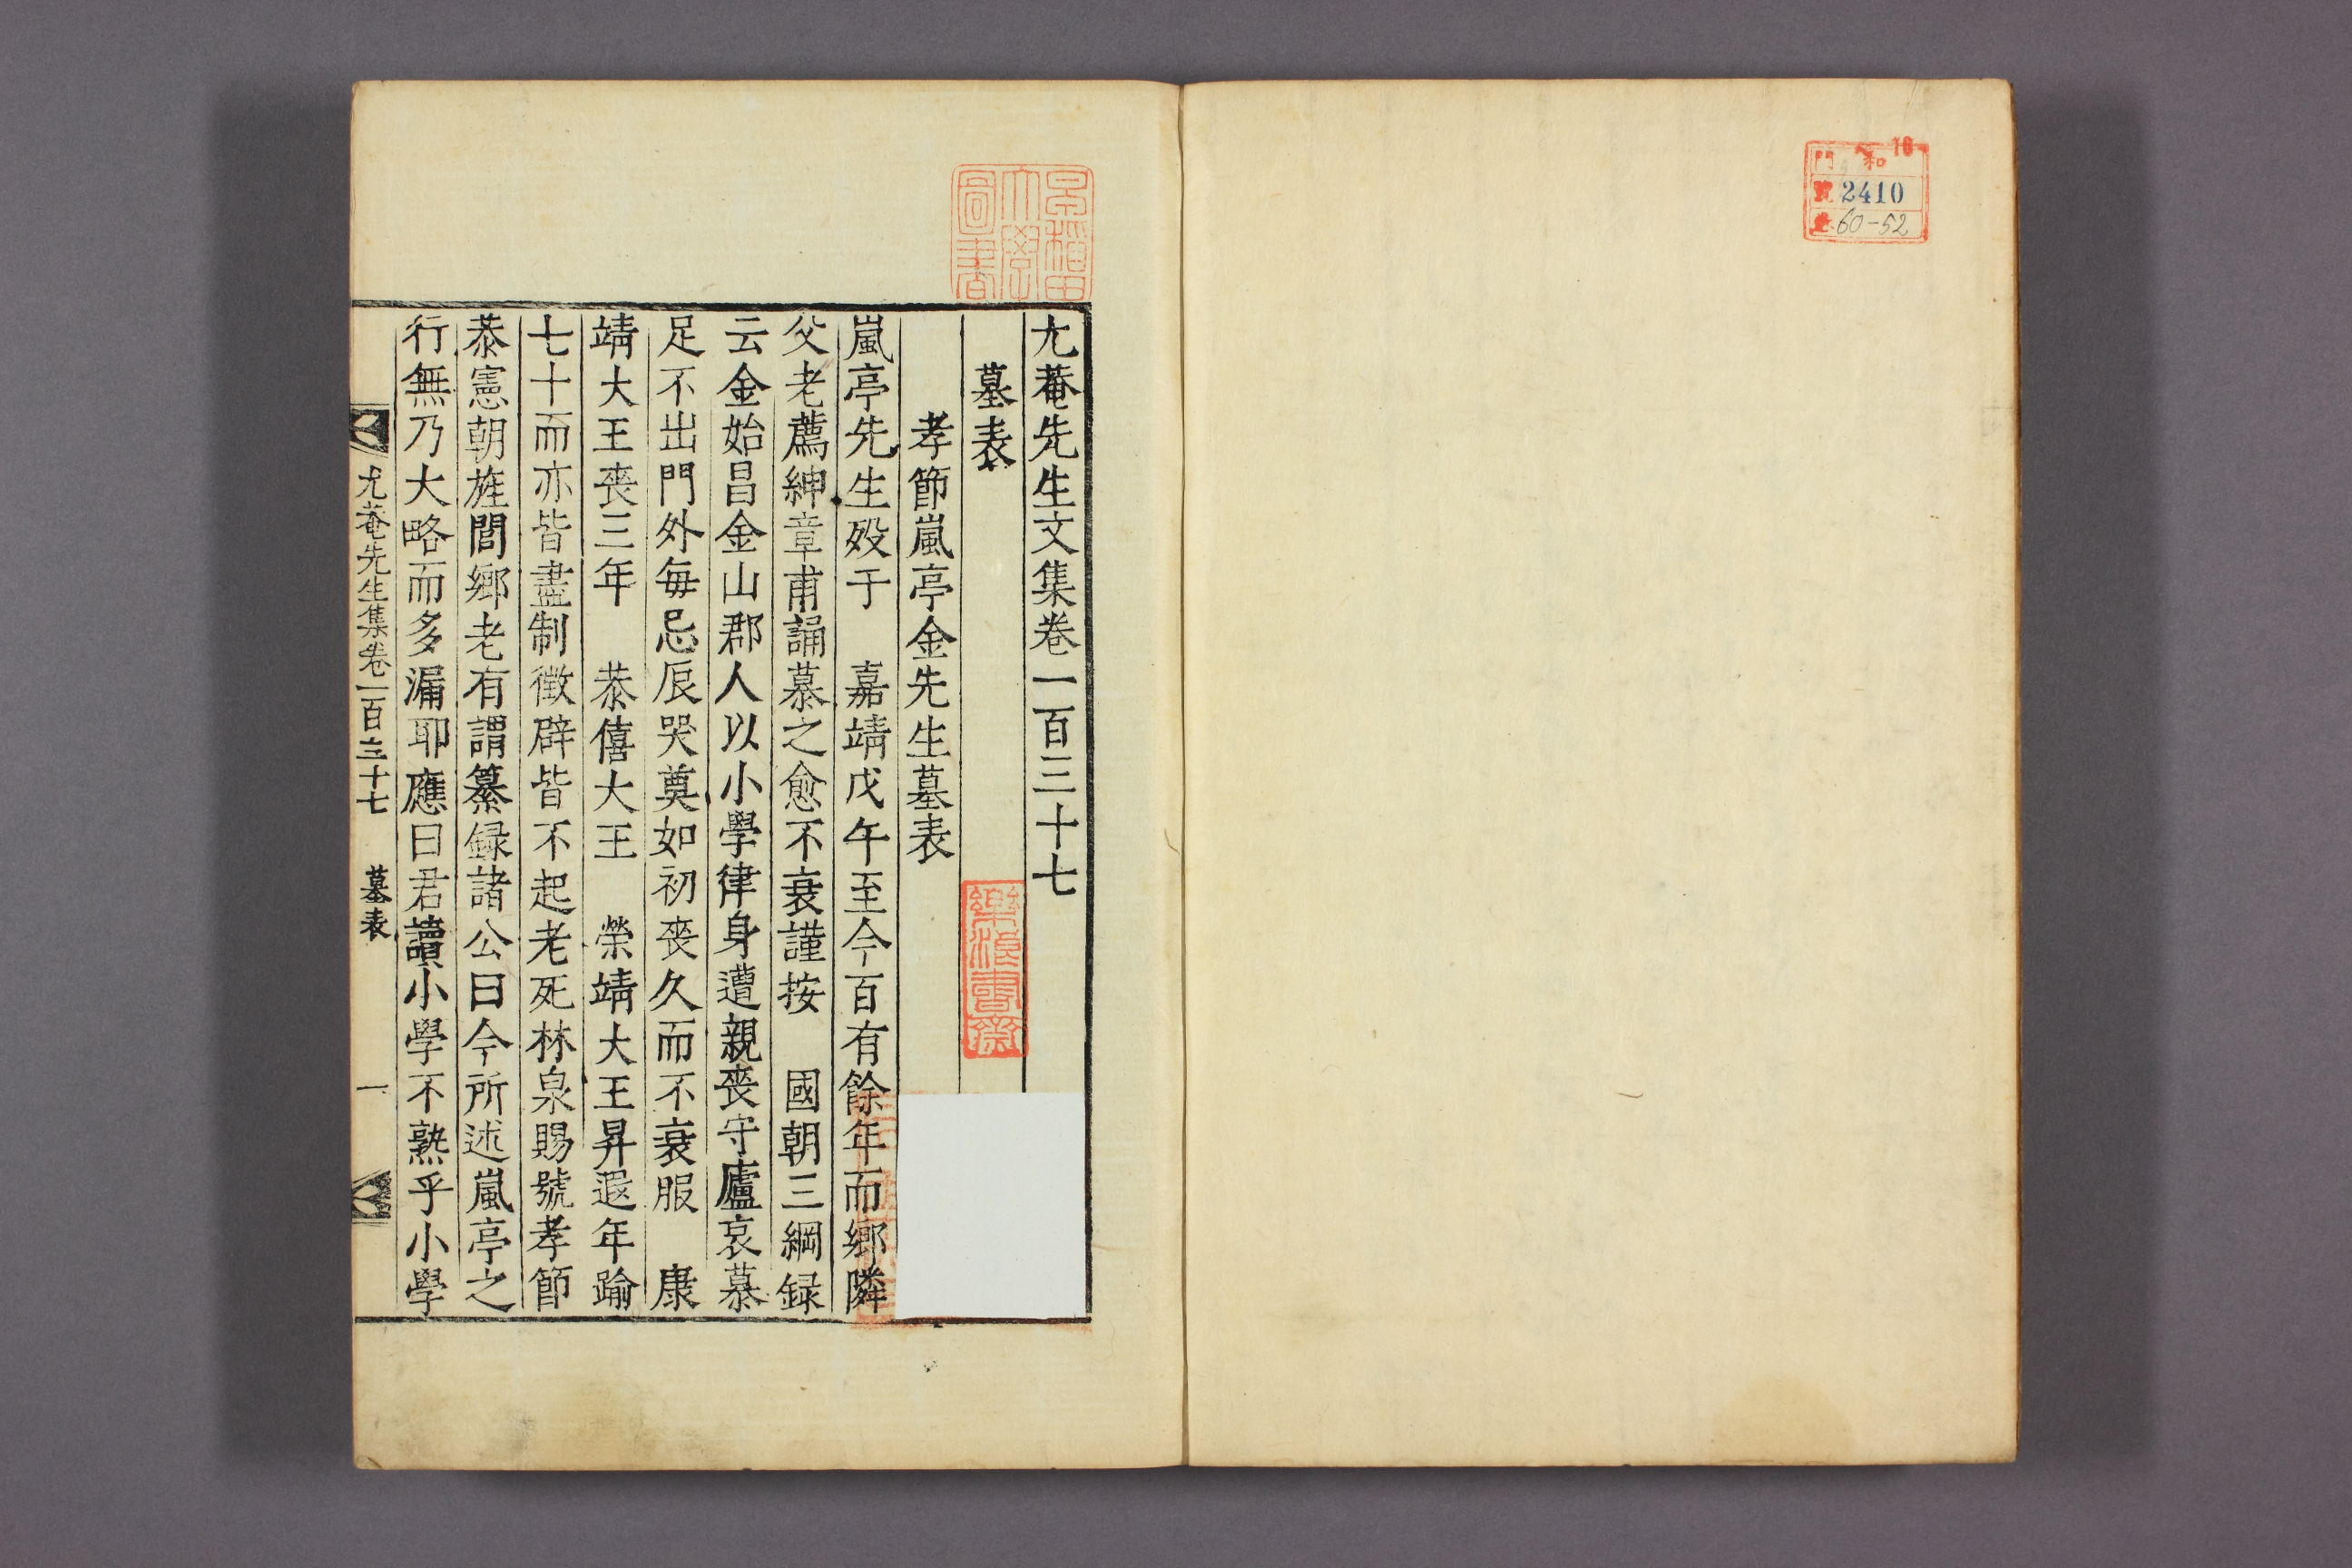 16
和
門
號 2410
卷 60-52
早稻田
大學
圖書
尤菴先生文集卷一百三十七
墓表
樂浪書齋
孝節嵐亭金先生墓表
嵐亭先生歿于 嘉靖戊午至今百有餘年而鄉隣
父老薦紳章甫誦慕之愈不衰謹按 國朝三綱録
云金始昌金山郡人以小學律身遭親喪守廬哀慕
足不出門外每忌辰哭奠如初喪久而不衰服 康
靖大王喪三年 恭僖大王 榮靖大王昇遐年踰
七十而亦皆盡制徵辟皆不起老死林泉賜號孝節
恭憲朝旌閭鄉老有謂纂録諸公曰今所述嵐亭之
行無乃大略而多漏耶應曰君讀小學不熟乎小學
尤菴先生集卷一百三十七 墓表 一